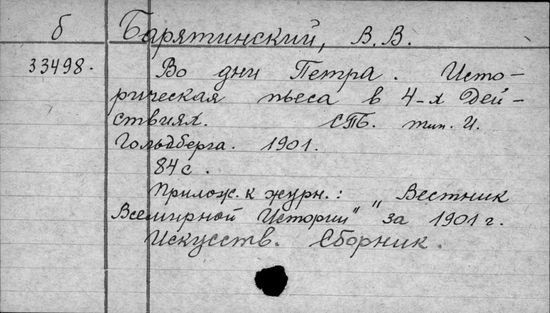 б Барятинский, В. В.
33498. Во дни Петра. Исто-
рическая пьеса в 4-х дей-
ствиях. СПБ. тип. И.
Гольдберга. 1901.
84 с.
Прилож. к журн.: „Вестник
Всемирной Истории" за 1901 г.
Искусств. Сборник.